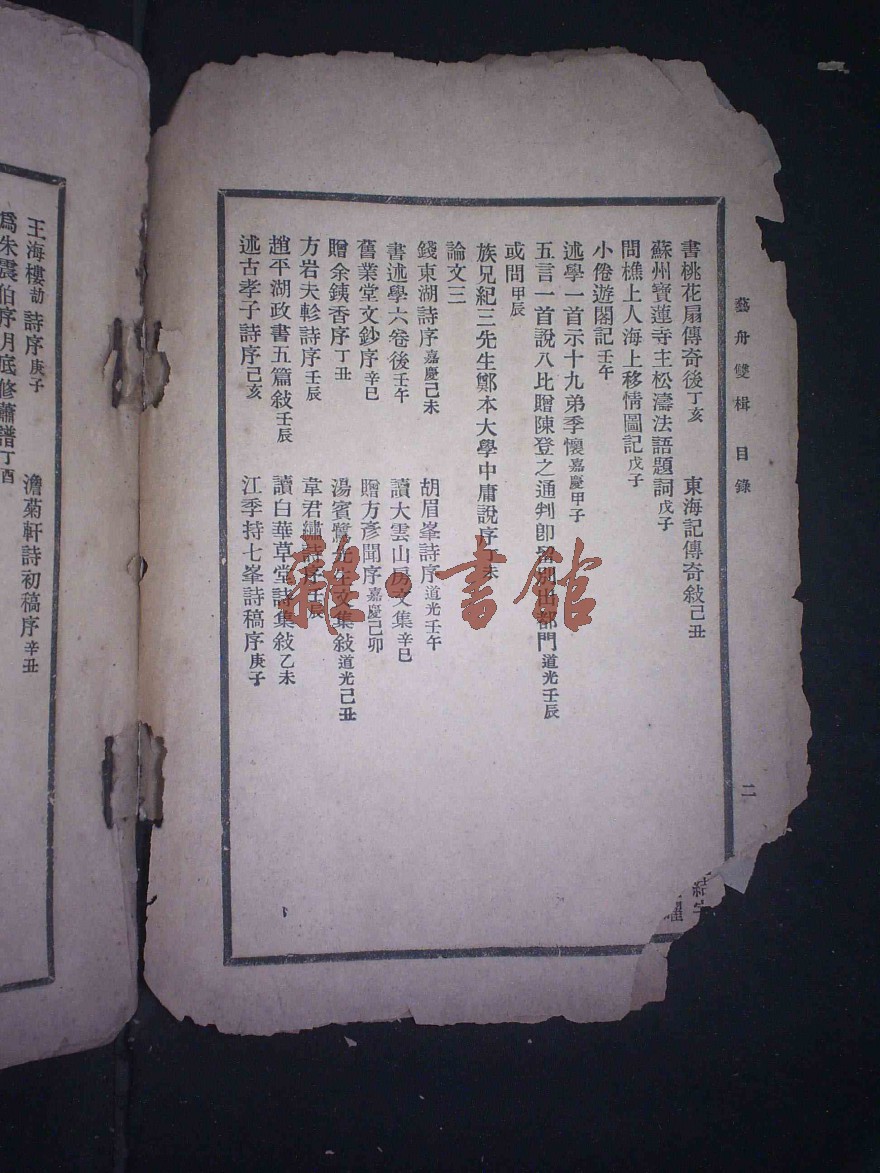 藝舟雙楫 目錄
二
書桃花扇傳奇後丁亥 東海記傳奇敍己丑
蘇州寶蓮寺主松濤法語題詞戊子
問樵上人海上移情圖記戊子
小倦遊閣記壬午
述學一首示十九弟季懷嘉慶甲子
五言一首說八比贈陳登之通判卽留別出都門道光壬辰
或問甲辰
族兄紀三先生鄭本大學中庸說序丁未
論文三
錢東湖詩序嘉慶己未 胡眉峯詩序道光壬午
書述學六卷後壬午 讀大雲山房文集辛巳
舊業堂文鈔序辛巳 贈方彥聞序嘉慶己卯
贈余銕香序丁丑 湯賓鷺先生文集敍道光己丑
方岩夫軫詩序壬辰 韋君繡詩序壬辰
趙平湖政書五篇敍壬辰 讀白華草堂詩集敍乙未
述古孝子詩序己亥 江季持七峯詩稿序庚子
王海樓劼詩序庚子 澹菊軒詩初稿序辛丑
爲朱震伯序月底修簫譜丁酉
雜·書館